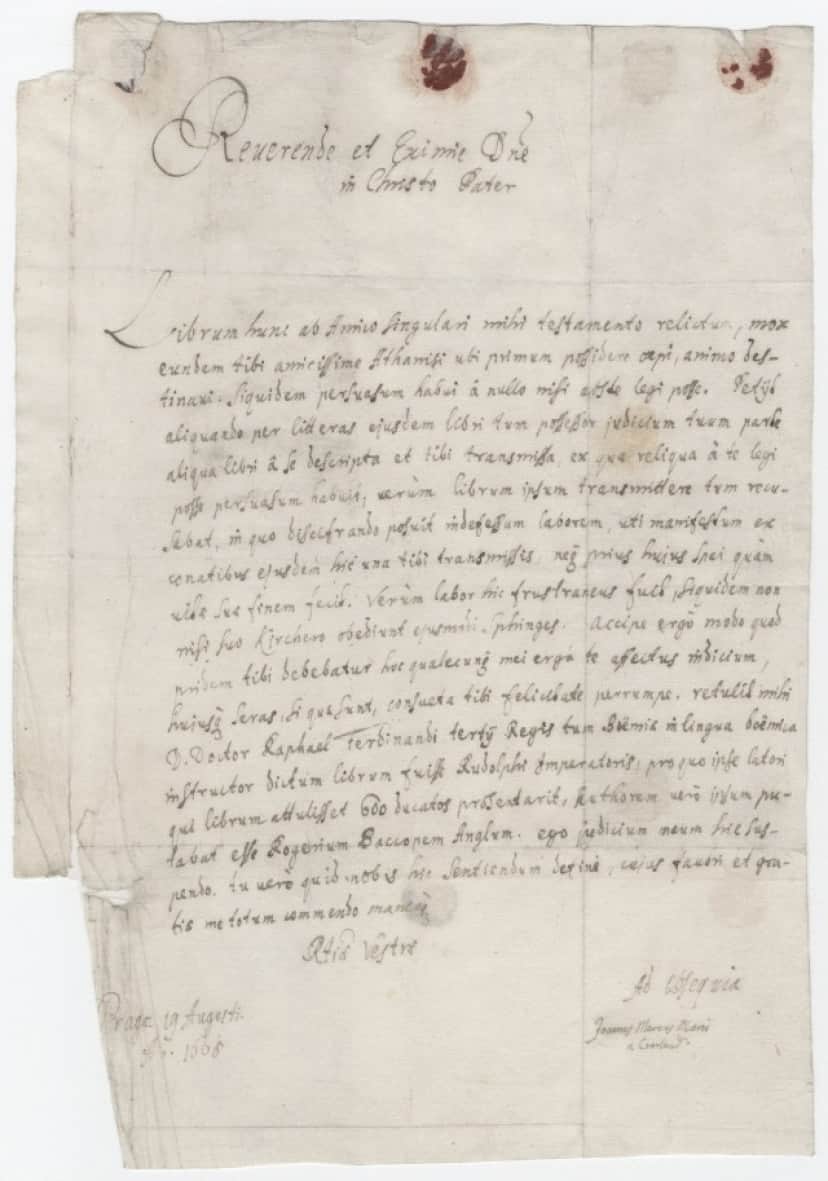 Reuerende et Eximie Dñe
in Christo Pater
Librum hunc ab Amico singulari mihi testamento relictum, mox
eundem tibi amicissime Athanasi ubi primum possidere cæpi, animo des-
tinaui: siquidem persuasum habui à nullo nisi abs te legi posse. Petijt
aliquando per litteras ejusdem libri tum possessor judicium tuum parte
aliqua libri à se descripta et tibi transmissa, ex qua reliqua à te legi
posse persuasum habuit; uerùm librum ipsum transmittere tum recu-
sabat, in quo discifrando posuit indefessum laborem, uti manifestum ex
conatibus ejusdem hic una tibi transmissis, neq prius hujus spei quàm
uitæ suæ finem fecit. Verùm labor hic frustraneus fuit, siquidem non
nisi suo Kirchero obediunt ejusmodi Sphinges. Accipe ergò modò quod
pridem tibi debebatur hoc qualecunq mei erga te affectus indicium,
hujusq seras, si quæ sunt, consueta tibi felicitate perrumpe. retulit mihi
D. Doctor Raphael Ferdinandi tertij Regis tum Boëmiæ in lingua boëmica
instructor dictum librum fuisse Rudolphi Imperatoris, pro quo ipse latori
qui librum attulisset 600 ducatos præsentarit, Authorem uerò ipsum pu-
tabat esse Rogerium Bacconem Anglum. ego judicium meum hic sus-
pendo. tu uerò quid nobis hic sentiendum defini, cujus fauori et gra-
tiæ me totum commendo maneoq
Rtiæ Vestræ
Ad obsequia
Joannes Marcus Marci
a Cronland
Pragæ 19 Augusti
Ao. 166